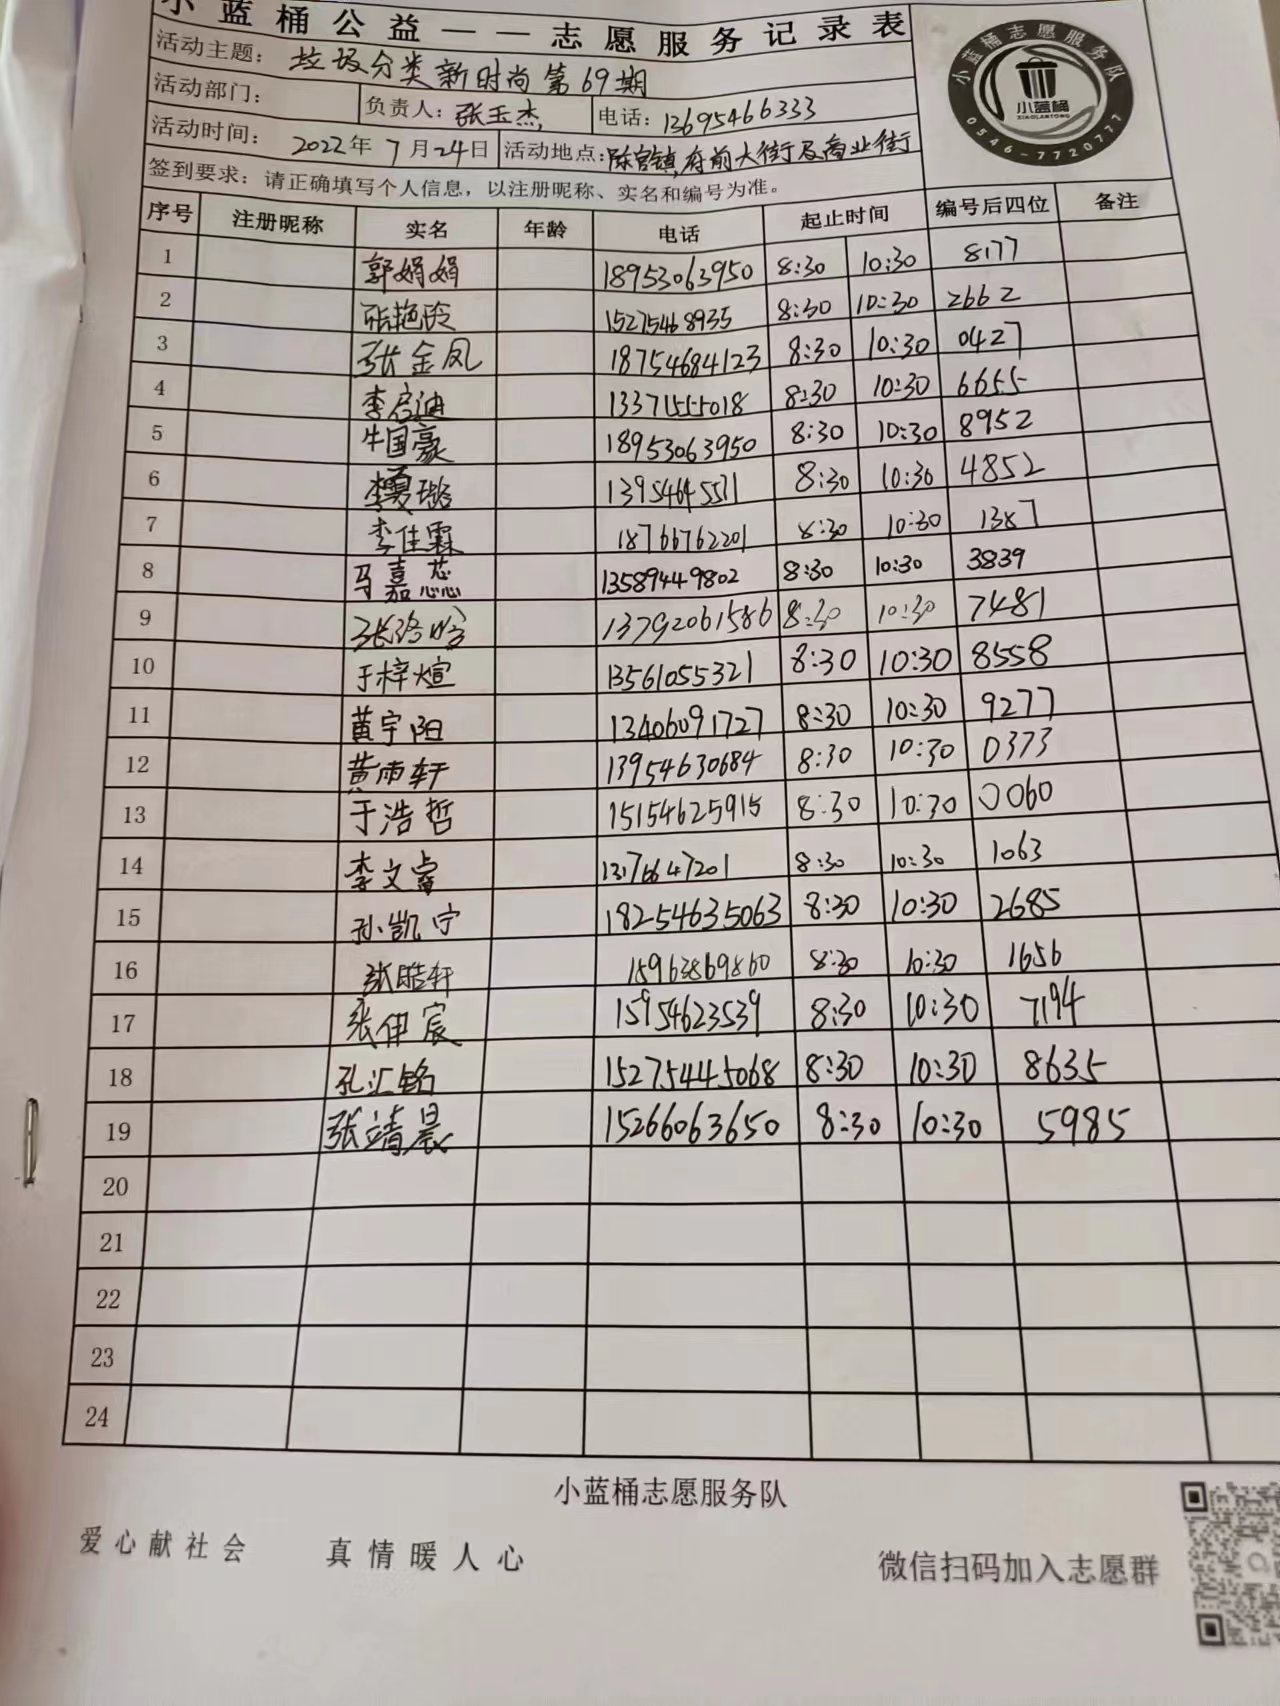 小蓝桶公益——志愿服务记录表
活动主题: 垃圾分类新时尚第69期
活动部门: 负责人: 张玉杰 电话: 13695466333
活动时间: 2022年7月24日 活动地点: 陈官镇,府前大街及商业街
签到要求: 请正确填写个人信息，以注册昵称、实名和编号为准。
小蓝桶志愿服务队
小蓝桶
XIAOLANTONG
0546-7720777
序号 注册昵称 实名 年龄 电话 起止时间 编号后四位 备注
1 郭娟娟 18953063950 8:30 10:30 8177
2 张艳玲 15275468935 8:30 10:30 2662
3 张金凤 18754684123 8:30 10:30 0427
4 李启迪 13371555018 8:30 10:30 6655
5 牛国豪 18953063950 8:30 10:30 8952
6 13954645571 8:30 10:30 4852
7 李佳霖 18766762201 8:30 10:30 1387
8 马嘉蕊 13589449802 8:30 10:30 3839
9 13792061586 8:30 10:30 7481
10 于梓煊 13561055321 8:30 10:30 8558
11 黄宇阳 13406091727 8:30 10:30 9277
12 黄雨轩 13954630684 8:30 10:30 0373
13 于浩哲 15154625915 8:30 10:30 0060
14 李文睿 8:30 10:30 1063
15 孙凯宁 18254635063 8:30 10:30 2685
16 张皓轩 15963869860 8:30 10:30 1656
17 张伊宸 15954623539 8:30 10:30 7194
18 孔汇铭 15275445068 8:30 10:30 8635
19 张靖晨 15266063650 8:30 10:30 5985
20
21
22
23
24
小蓝桶志愿服务队
爱心献社会 真情暖人心 微信扫码加入志愿群